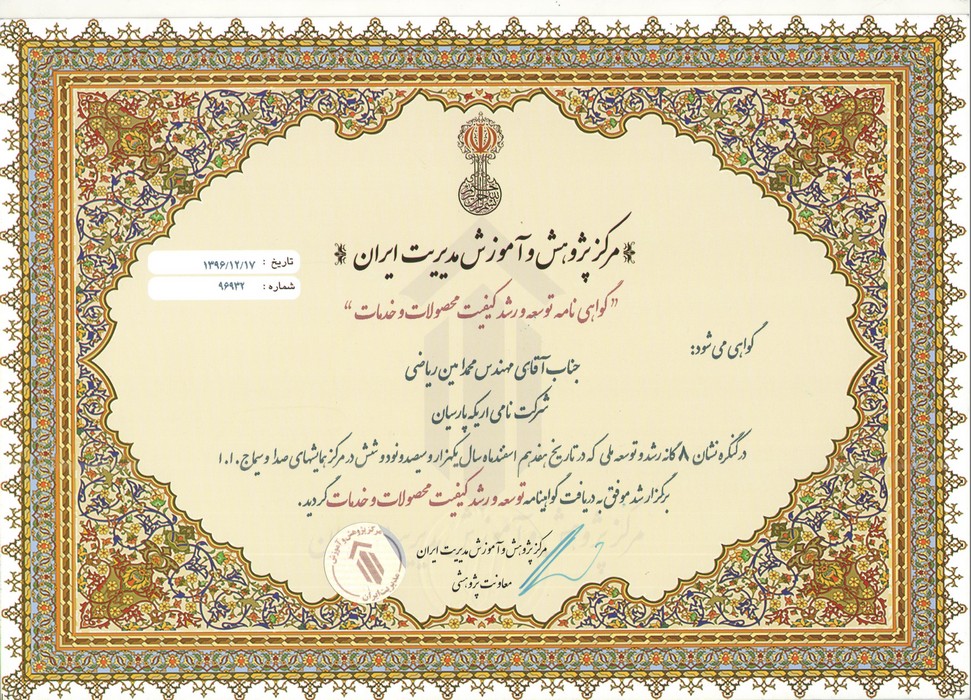 مرکز پژوهش و آموزش مدیریت ایران
تاریخ : ۱۳۹۶/۱۲/۱۷
شماره : ۹۶۹۳۲
"گواهی نامه توسعه و رشد کیفیت محصولات و خدمات"
گواهی می شود:
جناب آقای مهندس محمد امین ریاضی
شرکت نامی اریکه پارسیان
در کنگره نشان ۸ گانه رشد و توسعه ملی که در تاریخ هفدهم اسفند ماه سال یکهزار و سیصد و نود و شش در مرکز همایشهای صدا و سیما ج.ا.ا
برگزار شد موفق به دریافت گواهینامه توسعه و رشد کیفیت محصولات و خدمات گردید.
مرکز پژوهش و آموزش مدیریت ایران
معاونت پژوهشی
مرکز پژوهش و آموزش
مدیریت ایران